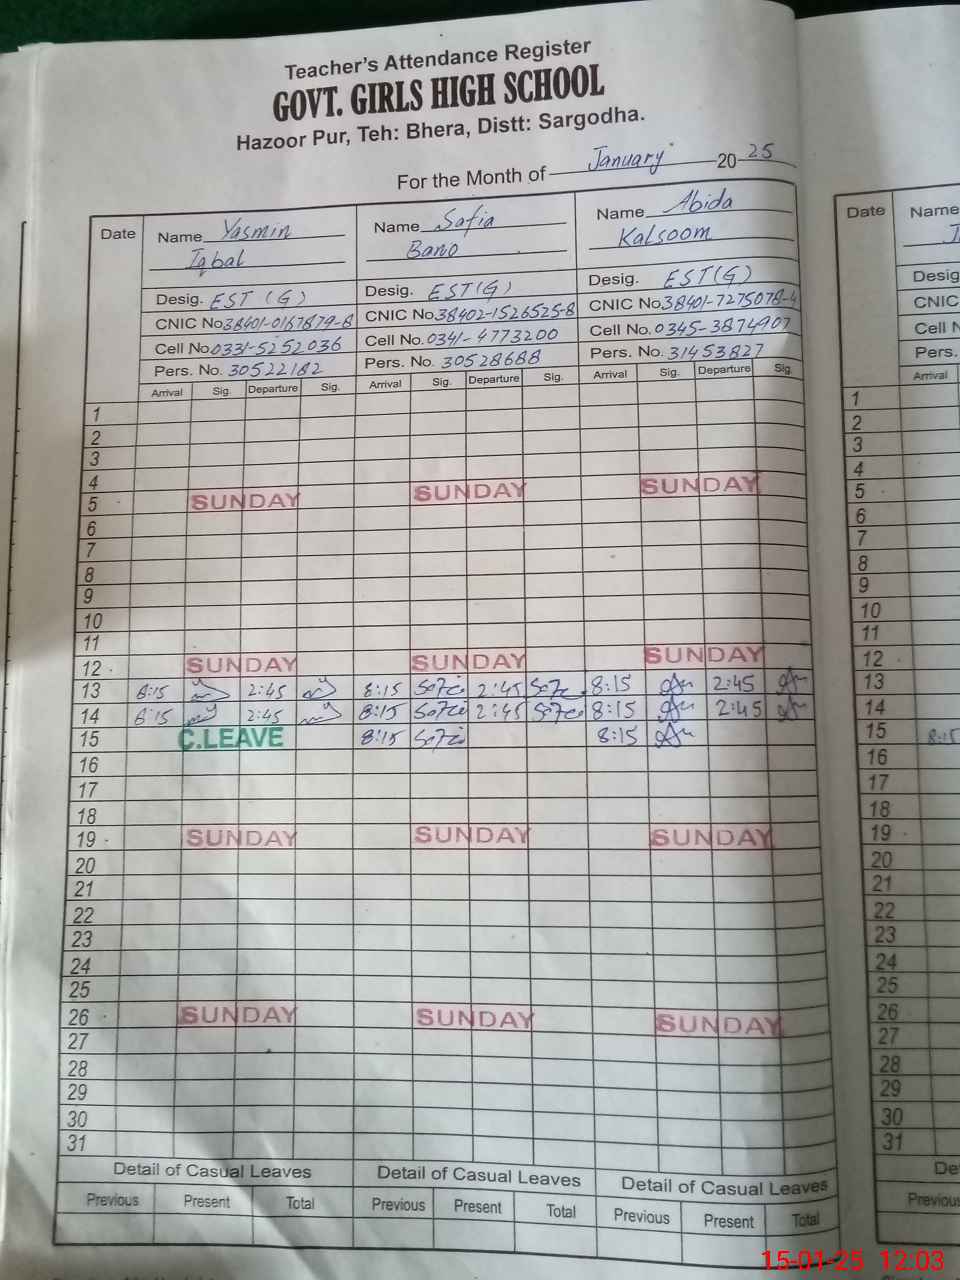 Teacher's Attendance Register
GOVT. GIRLS HIGH SCHOOL
Hazoor Pur, Teh: Bhera, Distt: Sargodha.
For the Month of January 20 25
Date Name Yasmin Name Safia Name Abida Date Name
Iqbal Bano Kalsoom
Desig. EST (G) Desig. EST(G) Desig. EST(G) Desig
CNIC No 38401-0167879-8 CNIC No 38402-1526525-8 CNIC No 38401-7275078-4 CNIC
Cell No 0331-5252036 Cell No. 0341-4773200 Cell No. 0345-3874907 Cell N
Pers. No. 30522182 Pers. No. 30528688 Pers. No. 31453827 Pers.
Arrival Sig. Departure Sig. Arrival Sig. Departure Sig. Arrival Sig. Departure Sig. Arrival
1 1
2 2
3 3
4 4
5 SUNDAY SUNDAY SUNDAY 5
6 6
7 7
8 8
9 9
10 10
11 11
12 SUNDAY SUNDAY SUNDAY 12
13 8:15 2:45 8:15 2:45 8:15 2:45 13
14 8:15 2:45 8:15 2:45 8:15 2:45 14
15 C.LEAVE 8:15 8:15 15 8:15
16 16
17 17
18 18
19 SUNDAY SUNDAY SUNDAY 19
20 20
21 21
22 22
23 23
24 24
25 25
26 SUNDAY SUNDAY SUNDAY 26
27 27
28 28
29 29
30 30
31 31
Detail of Casual Leaves Detail of Casual Leaves Detail of Casual Leaves De
Previous Present Total Previous Present Total Previous Present Total Previous
15-01-25 12:03